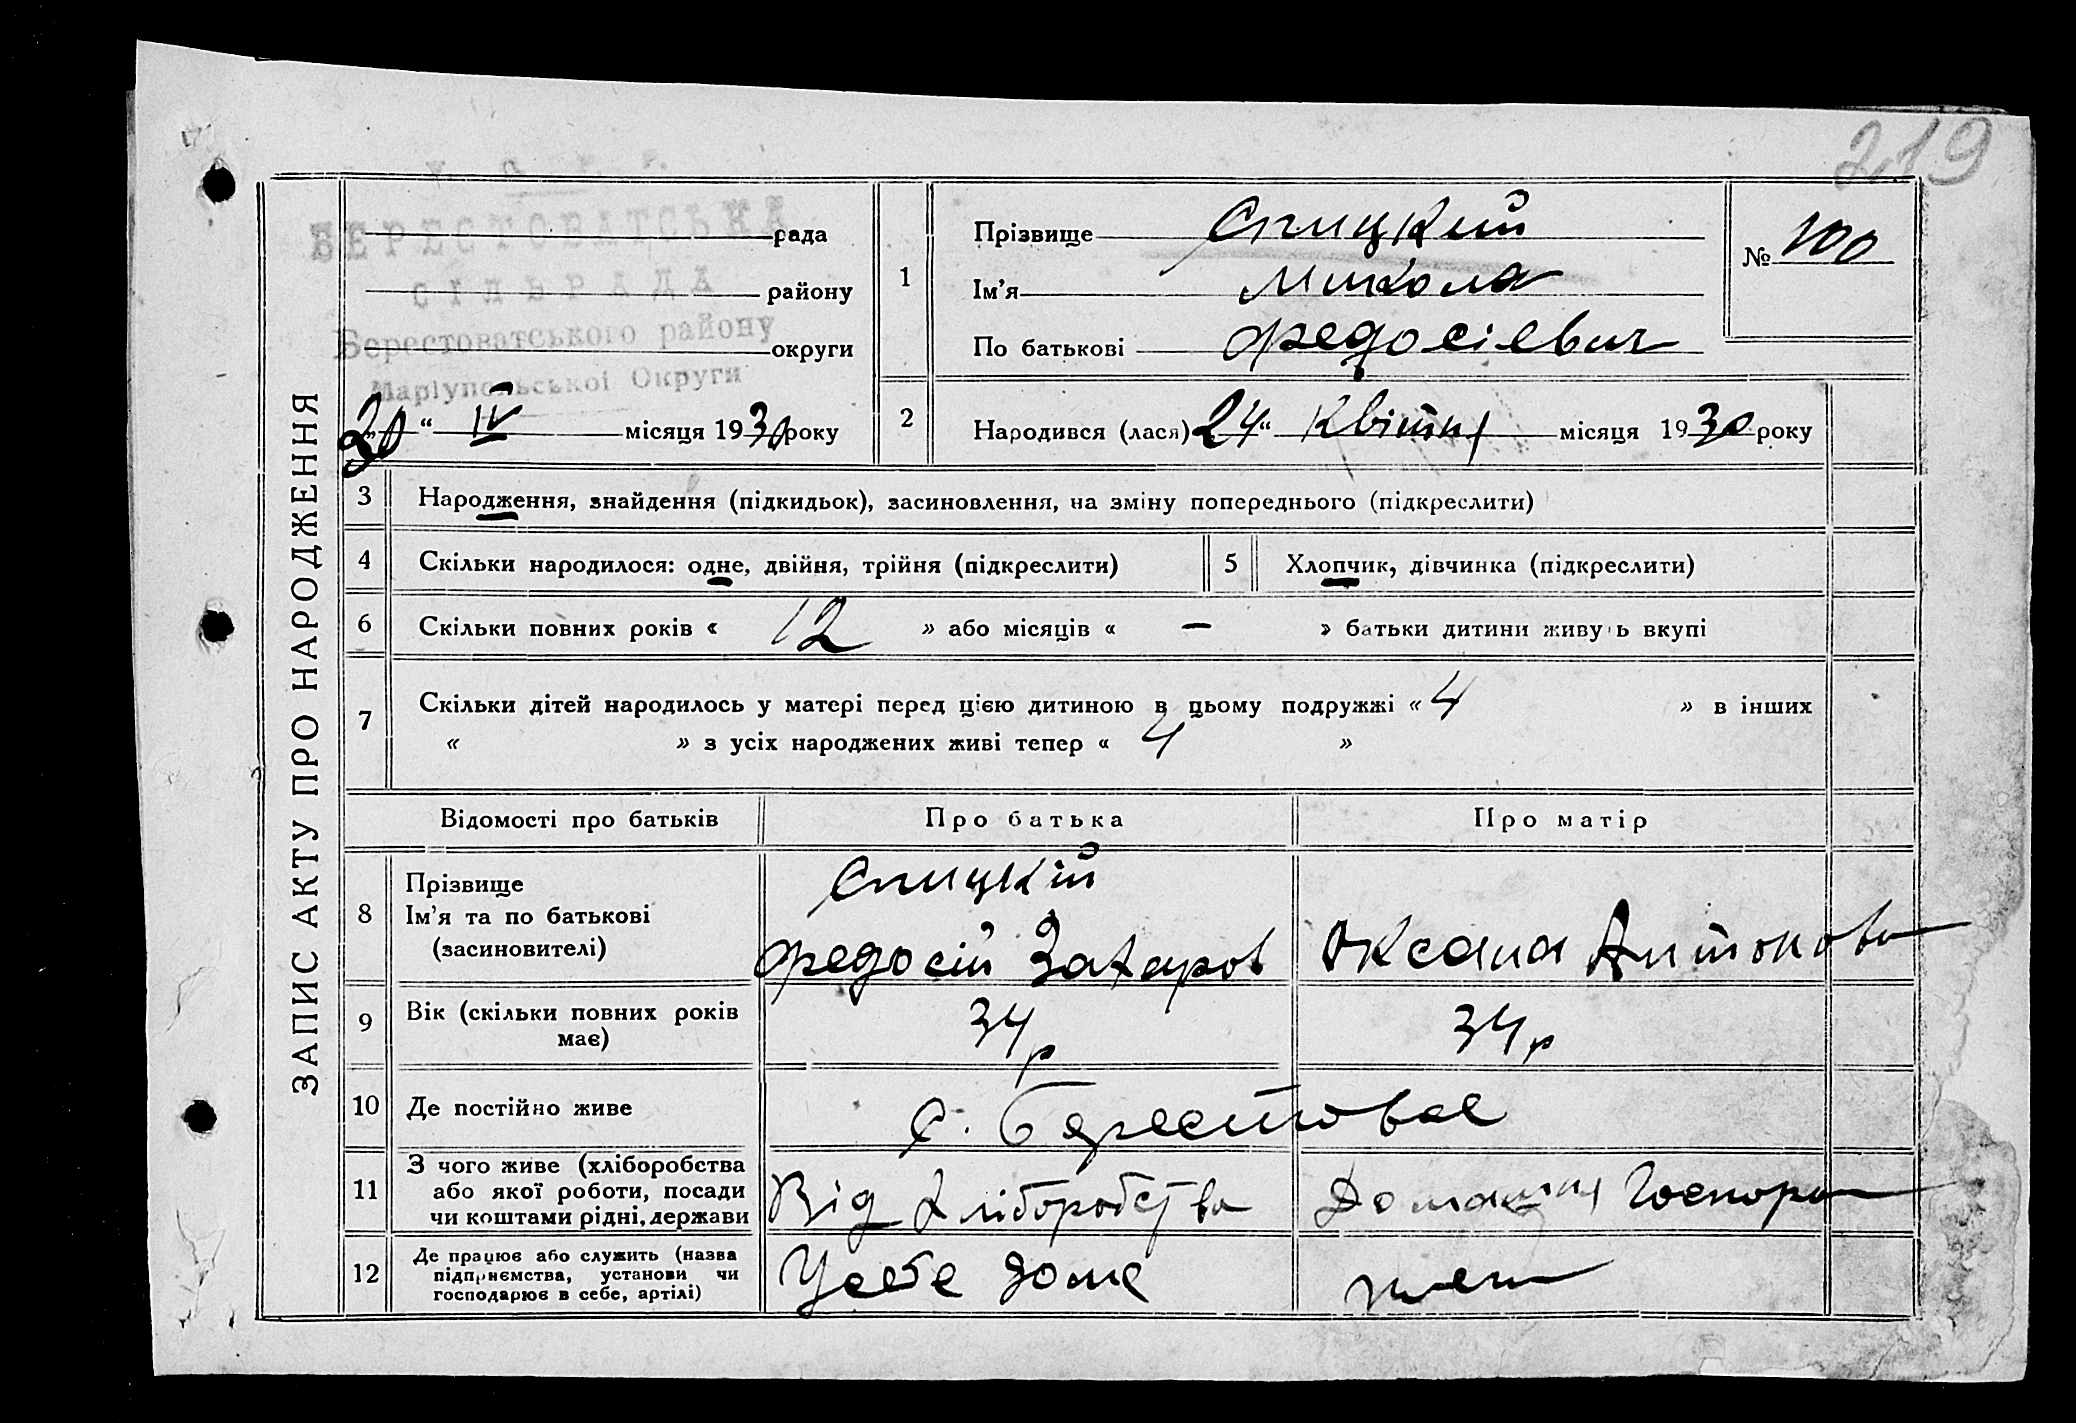 219
БЕРЕСТОВАТСЬКА
рада
СІЛЬРАДА
району
Берестоватського району
округи
Маріупольської Округи
„30“ IV місяця 1930 року
ЗАПИС АКТУ ПРО НАРОДЖЕННЯ
1 Прізвище Спицкий
Ім'я Микола
По батькові Федосієвич
№ 100
2 Народився (лася) 24“ Квітня місяця 1930 року
3 Народження, знайдення (підкидьок), засиновлення, на зміну попереднього (підкреслити)
4 Скільки народилося: одне, двійня, трійня (підкреслити) 5 Хлопчик, дівчинка (підкреслити)
6 Скільки повних років « 12 » або місяців « – » батьки дитини живуть вкупі
7 Скільки дітей народилось у матері перед цією дитиною в цьому подружжі « 4 » в інших
« » з усіх народжених живі тепер « 4 »
Відомості про батьків Про батька Про матір
8 Прізвище
Ім'я та по батькові
(засиновителі)
Спицкій
Федосій Захаров Оксана Антонова
9 Вік (скільки повних років
має)
34 р 34 р
10 Де постійно живе с. Берестовое
11 З чого живе (хліборобства
або якої роботи, посади
чи коштами рідні, держави
Від хліборобства Домашня Господар
12 Де працює або служить (назва
підприємства, установи чи
господарює в себе, артілі)
У себе доме